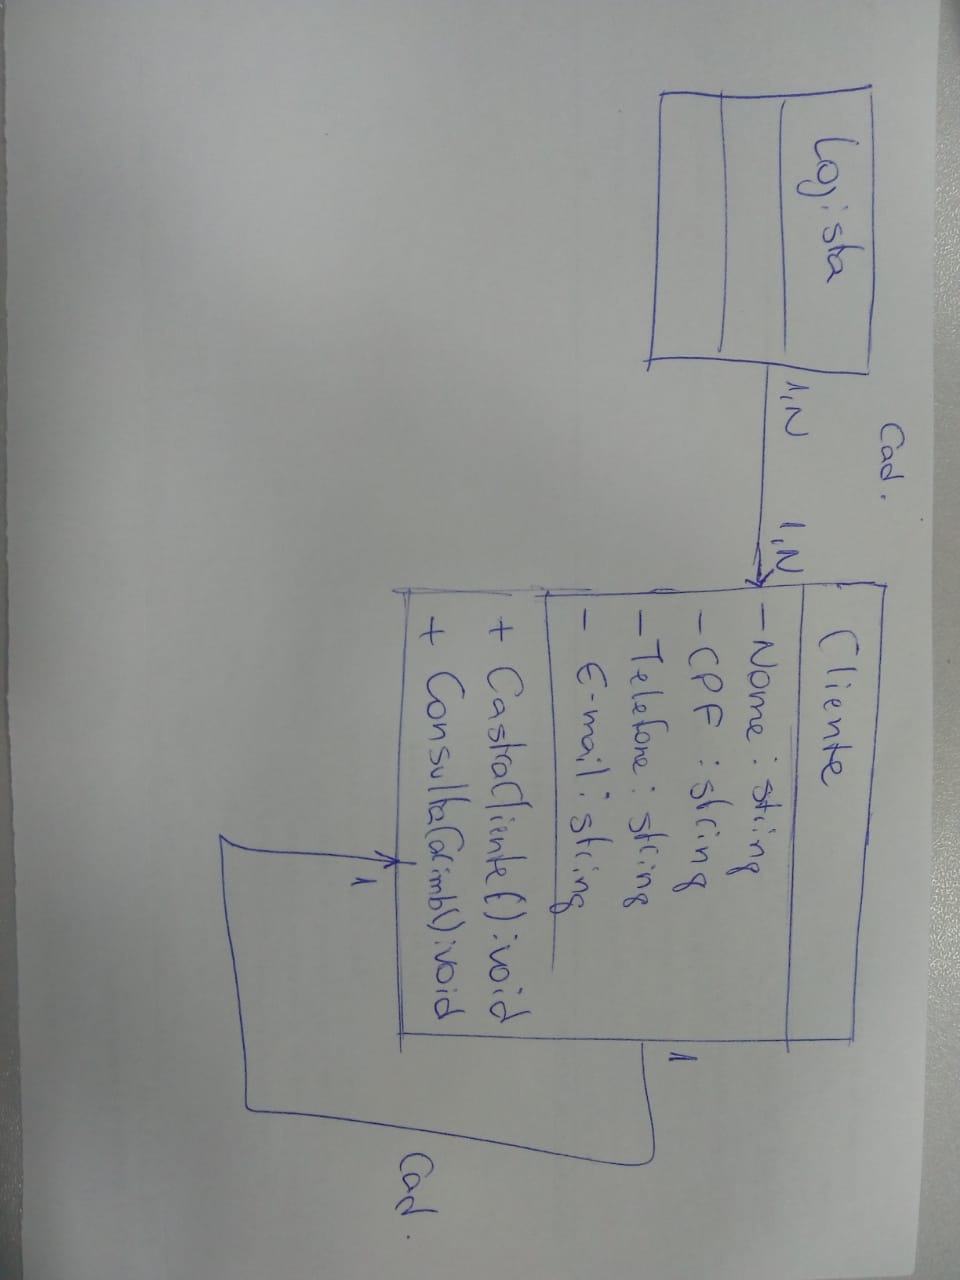 Cad.
Logista
Cliente
1,N
1,N
- Nome : string
- CPF : string
- Telefone : string
- E-mail : string
1
+ CastraCliente() : void
+ Consulta( ) : void
Cad.
1